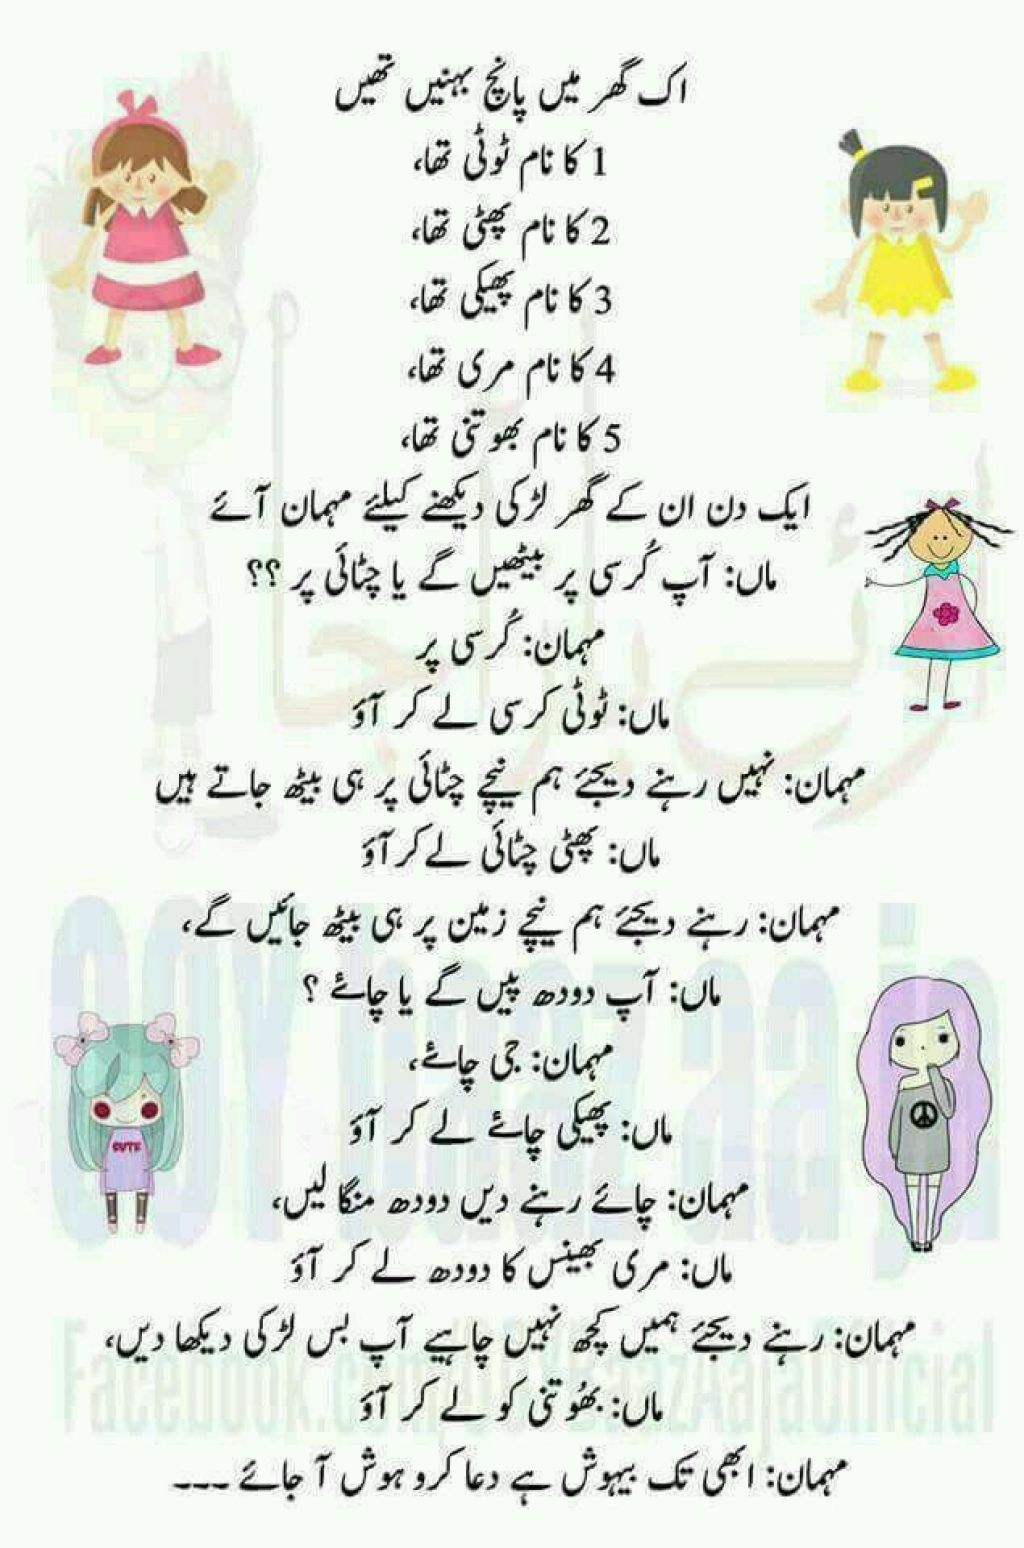 اک گھر میں پانچ بہنیں تھیں
1 کا نام ٹوٹی تھا،
2 کا نام پھٹی تھا،
3 کا نام پھیکی تھا،
4 کا نام مری تھا،
5 کا نام بھوتنی تھا،
ایک دن ان کے گھر لڑکی دیکھنے کیلئے مہمان آئے
ماں: آپ کُرسی پر بیٹھیں گے یا چٹائی پر ؟؟
مہمان: کُرسی پر
ماں: ٹوٹی کرسی لے کر آؤ
مہمان: نہیں رہنے دیجئے ہم نیچے چٹائی پر ہی بیٹھ جاتے ہیں
ماں: پھٹی چٹائی لے کر آؤ
مہمان: رہنے دیجئے ہم نیچے زمین پر ہی بیٹھ جائیں گے،
ماں: آپ دودھ پیں گے یا چائے ؟
مہمان: جی چائے،
ماں: پھیکی چائے لے کر آؤ
مہمان: چائے رہنے دیں دودھ منگا لیں،
ماں: مری بھینس کا دودھ لے کر آؤ
مہمان: رہنے دیجئے ہمیں کچھ نہیں چاہیے آپ بس لڑکی دیکھا دیں،
ماں: بھُوتنی کو لے کر آؤ
مہمان: ابھی تک بیہوش ہے دعا کرو ہوش آ جائے ---
CUTE
OOYbaazaaja
Facebook.com/OOYBaazAajaOfficial